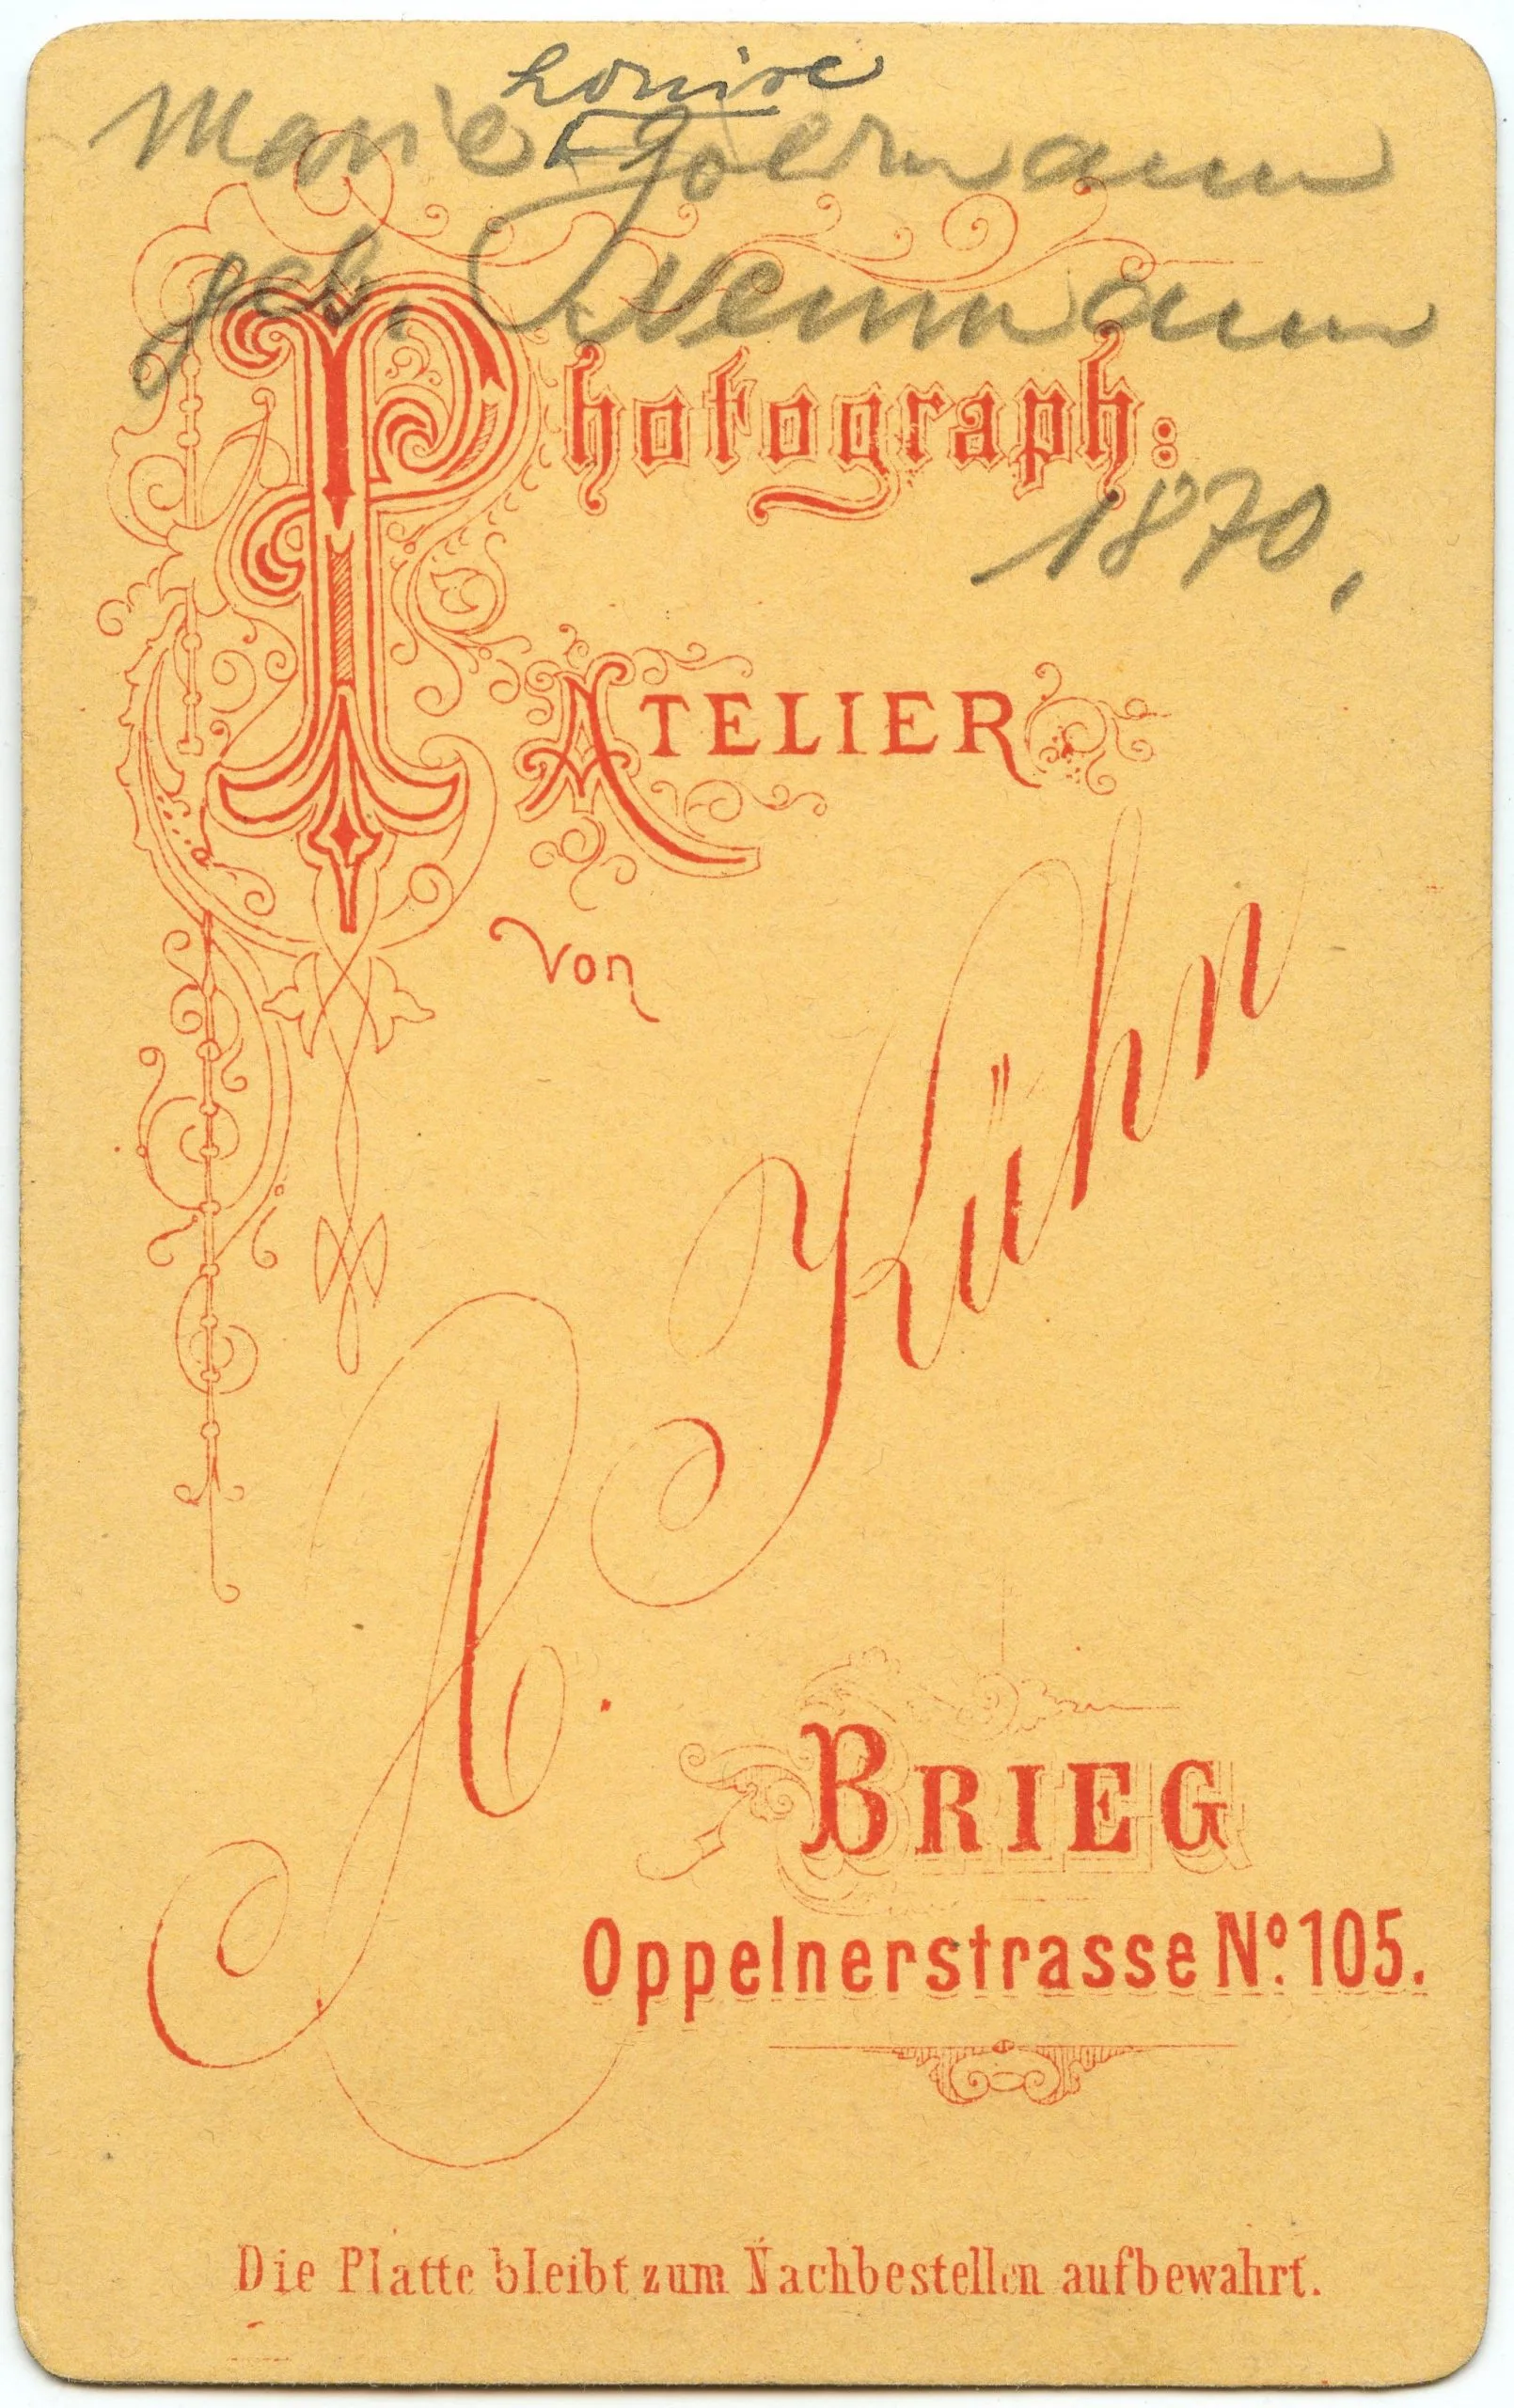 Louise
Marie Goermann
geb.
Photograph:
1870.
ATELIER
von
A. Kühn
BRIEG
Oppelnerstrasse No. 105.
Die Platte bleibt zum Nachbestellen aufbewahrt.